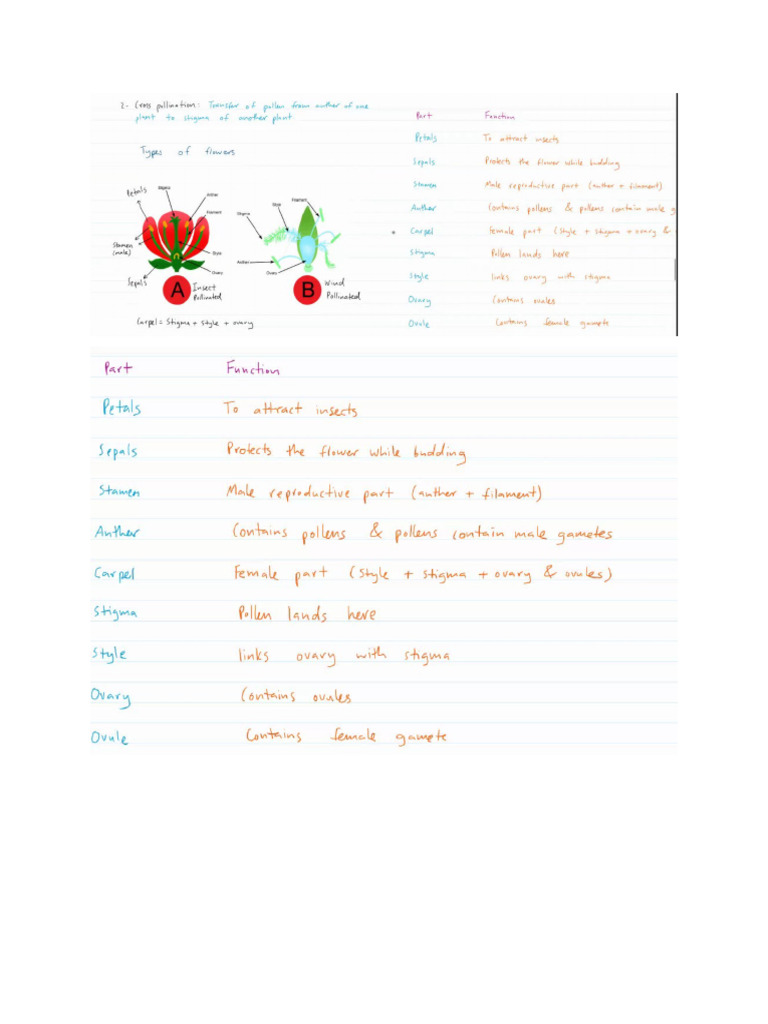 2- Cross pollination: Transfer of pollen from anther of one
plant to stigma of another plant
Types of flowers
Petals
Stigma
Anther
Filament
Stamen
(male)
Style
Sepals
Ovary
A
Insect
Pollinated
Carpel = Stigma + style + ovary
Filament
Style
Stigma
Anther
Ovary
B
Wind
Pollinated
Part Function
Petals To attract insects
Sepals Protects the flower while budding
Stamen Male reproductive part (anther + filament)
Anther Contains pollens & pollens contain male g
Carpel Female part (Style + Stigma + ovary &
Stigma Pollen lands here
Style links ovary with stigma
Ovary Contains ovules
Ovule Contains female gamete
Part Function
Petals To attract insects
Sepals Protects the flower while budding
Stamen Male reproductive part (anther + filament)
Anther Contains pollens & pollens contain male gametes
Carpel Female part (Style + stigma + ovary & ovules)
Stigma Pollen lands here
Style links ovary with stigma
Ovary Contains ovules
Ovule Contains female gamete